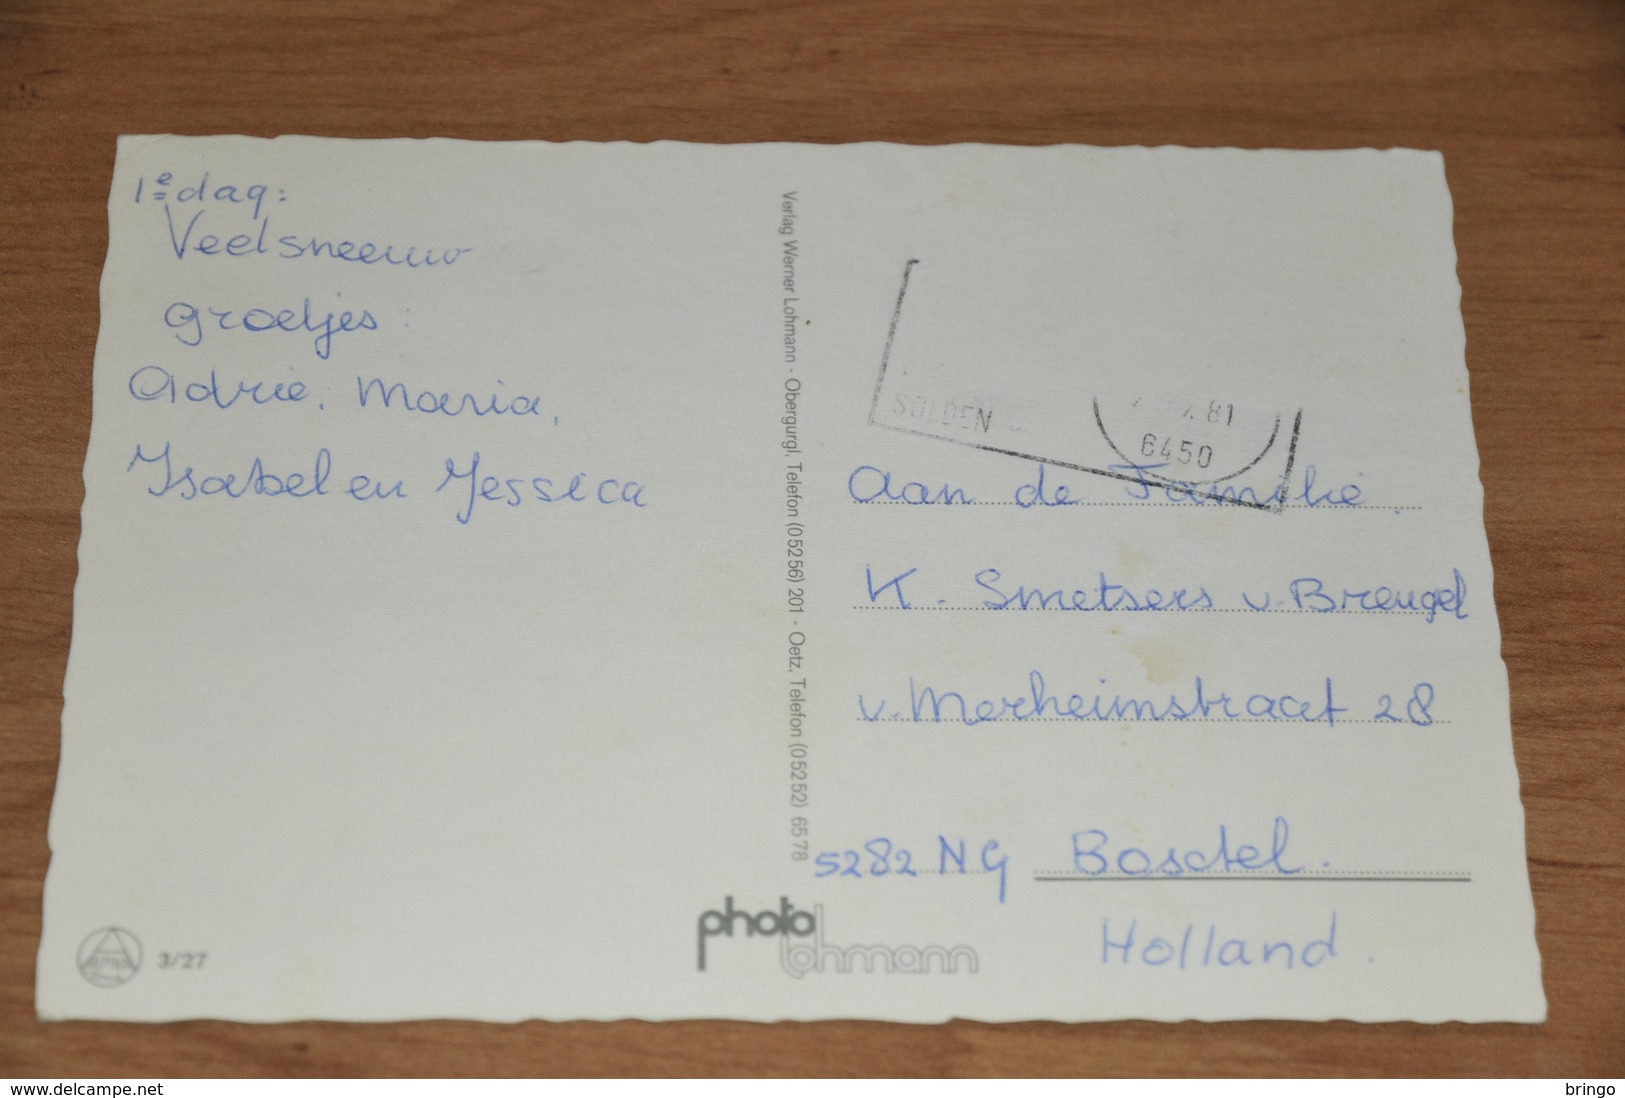 1e dag:
Veel sneeuw
groetjes:
Adrie, Maria,
Ysabel en Jessica
Verlag Werner Lohmann - Obergurgl, Telefon (05256) 201 - Oetz, Telefon (05252) 6578
SÖLDEN
81
6450
Aan de Familie
K. Smetsers v. Breugel
v. Merheimstraat 28
5282 NG Boxtel.
Holland.
photo
lohmann
3/27
delcampe.net
bringo